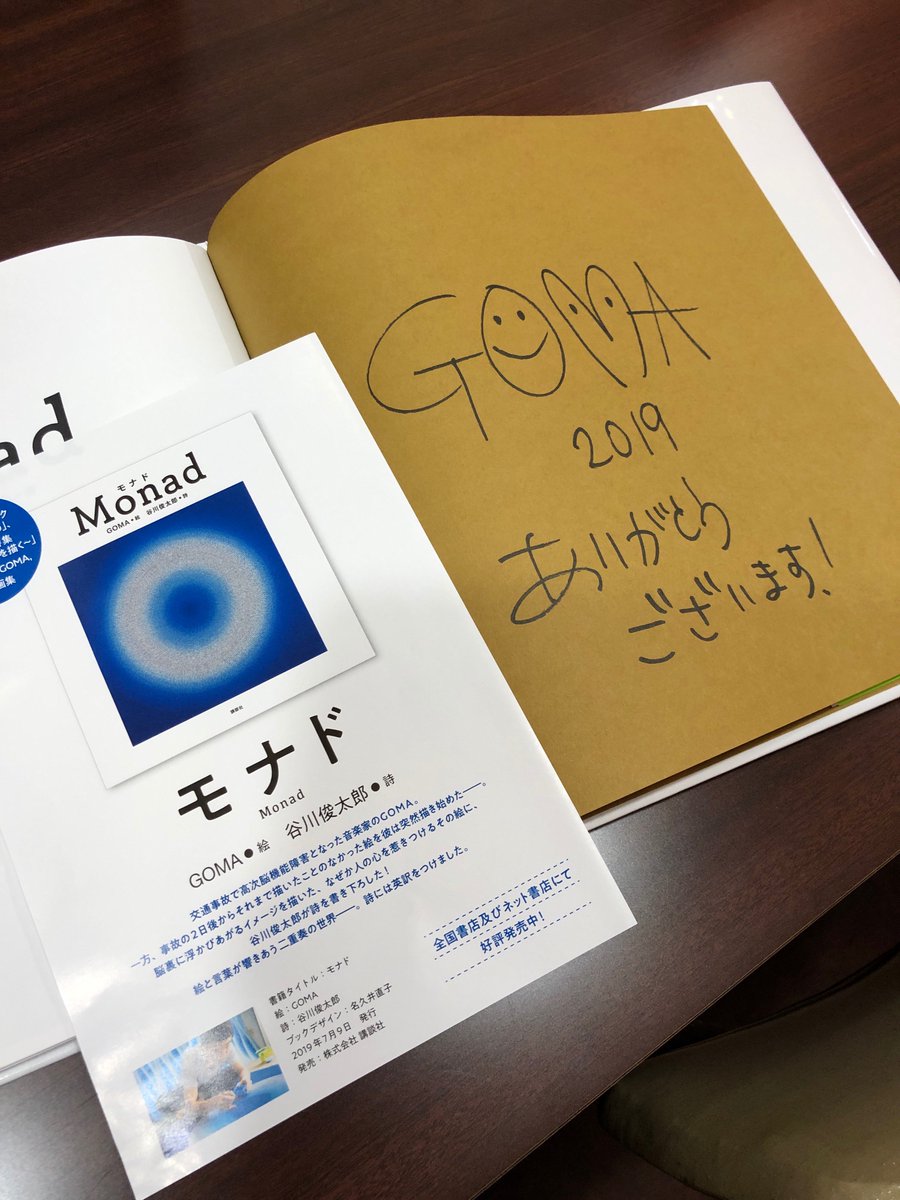 GOMA
2019
ありがとう
ございます!
nad
モナド
Monad
GOMA・絵 谷川俊太郎・詩
講談社
を描く〜」
GOMA,
画集
モナド
Monad
GOMA●絵 谷川俊太郎●詩
交通事故で高次脳機能障害となった音楽家のGOMA。
一方、事故の2日後からそれまで描いたことのなかった絵を彼は突然描き始めた──。
脳裏に浮かびあがるイメージを描いた、なぜか人の心を惹きつけるその絵に、
谷川俊太郎が詩を書き下ろした!
絵と言葉が響きあう二重奏の世界──。詩には英訳をつけました。
全国書店及びネット書店にて
好評発売中!
書籍タイトル:モナド
絵:GOMA
詩:谷川俊太郎
ブックデザイン:名久井直子
2019年7月9日 発行
発売:株式会社 講談社